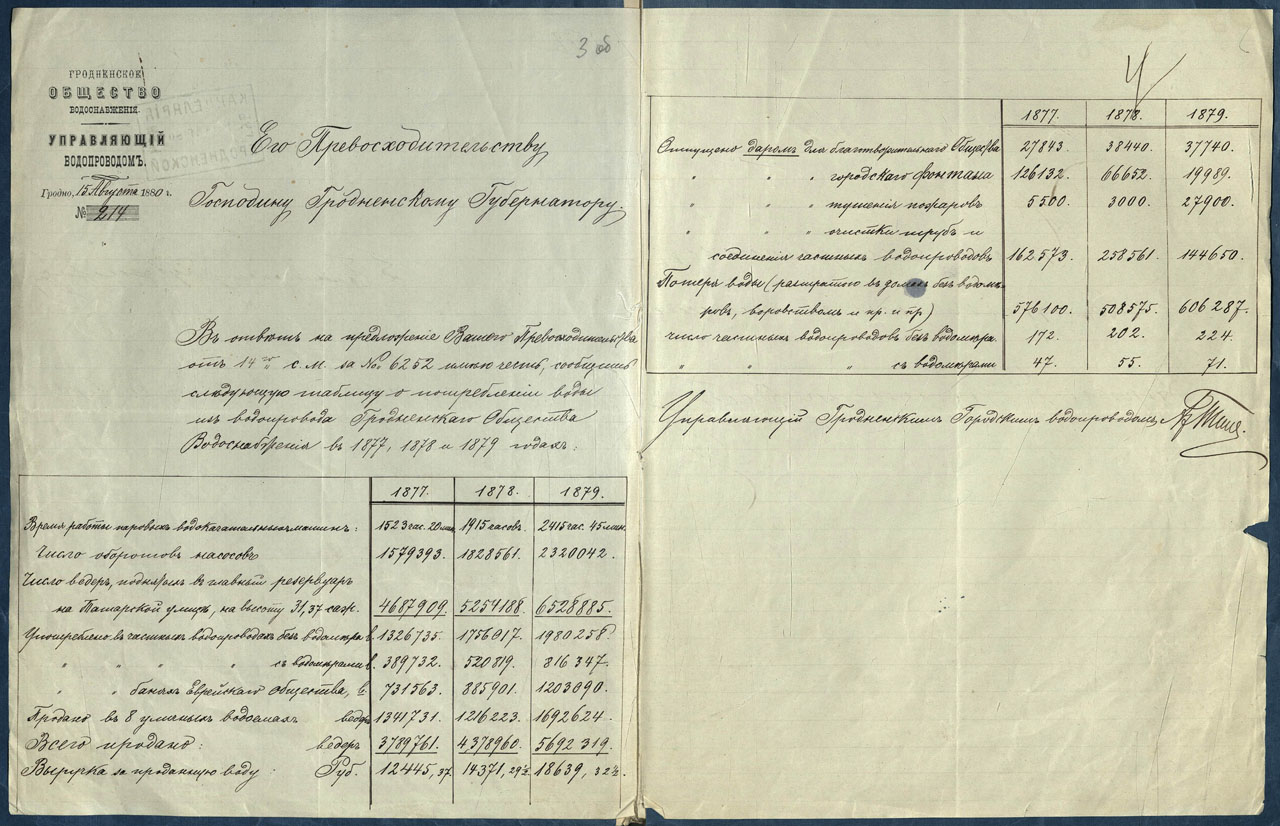 3 об
ГРОДНЕНСКОЕ
ОБЩЕСТВО
ВОДОСНАБЖЕНІЯ.
УПРАВЛЯЮЩІЙ
ВОДОПРОВОДОМЪ.
Гродно, 15 Августа 1880 г.
№ 214
Его Превосходительству
Господину Гродненскому Губернатору.
Въ отвѣтъ на предложеніе Вашего Превосходительства
отъ 14го с. м. за № 6252 имѣю честь сообщить
слѣдующую таблицу о потребленіи воды
изъ водопровода Гродненскаго Общества
Водоснабженія въ 1877, 1878 и 1879 годахъ:
1877. 1878. 1879.
Время работы паровыхъ водокачательныхъ машинъ: 1523 час. 20 мин. 1915 часовъ. 2415 час. 45 мин.
Число оборотовъ насосовъ 1579393. 1828561. 2320042.
Число ведеръ, поднятыхъ въ главный резервуаръ
на Татарской улицѣ, на высоту 31,37 саж. 4687909. 5254188. 6528885.
Употреблено въ частныхъ водопроводахъ безъ водомѣра в. 1326735. 1756017. 1980258.
" " " " съ водомѣрами в. 389732. 520819. 816347.
" " баняхъ Еврейскаго Общества, в. 731563. 885901. 1203090.
Продано въ 8 уличныхъ водоемахъ ведеръ 1341731. 1216223. 1692624.
Всего продано: ведеръ 3789761. 4378960. 5692319.
Выручка за проданную воду: Руб. 12445,37. 14371,29½ 18639,32½.
4
1877. 1878. 1879.
Отпущено даромъ для благотворительнаго Общества 27843. 38440. 37740.
" " " городскаго фонтана 126132. 66652. 19989.
" " " тушенія пожаровъ 5500. 3000. 27900.
" " " очистки трубъ и
соединенія частныхъ водопроводовъ 162573. 258561. 144650.
Потеря воды (растратою въ домахъ безъ водомѣ-
ровъ, воровствомъ и пр. и пр) 576100. 508575. 606287.
Число частныхъ водопроводовъ безъ водомѣра. 172. 202. 224.
" " " съ водомѣрами 47. 55. 71.
Управляющій Гродненскимъ Городскимъ водопроводомъ